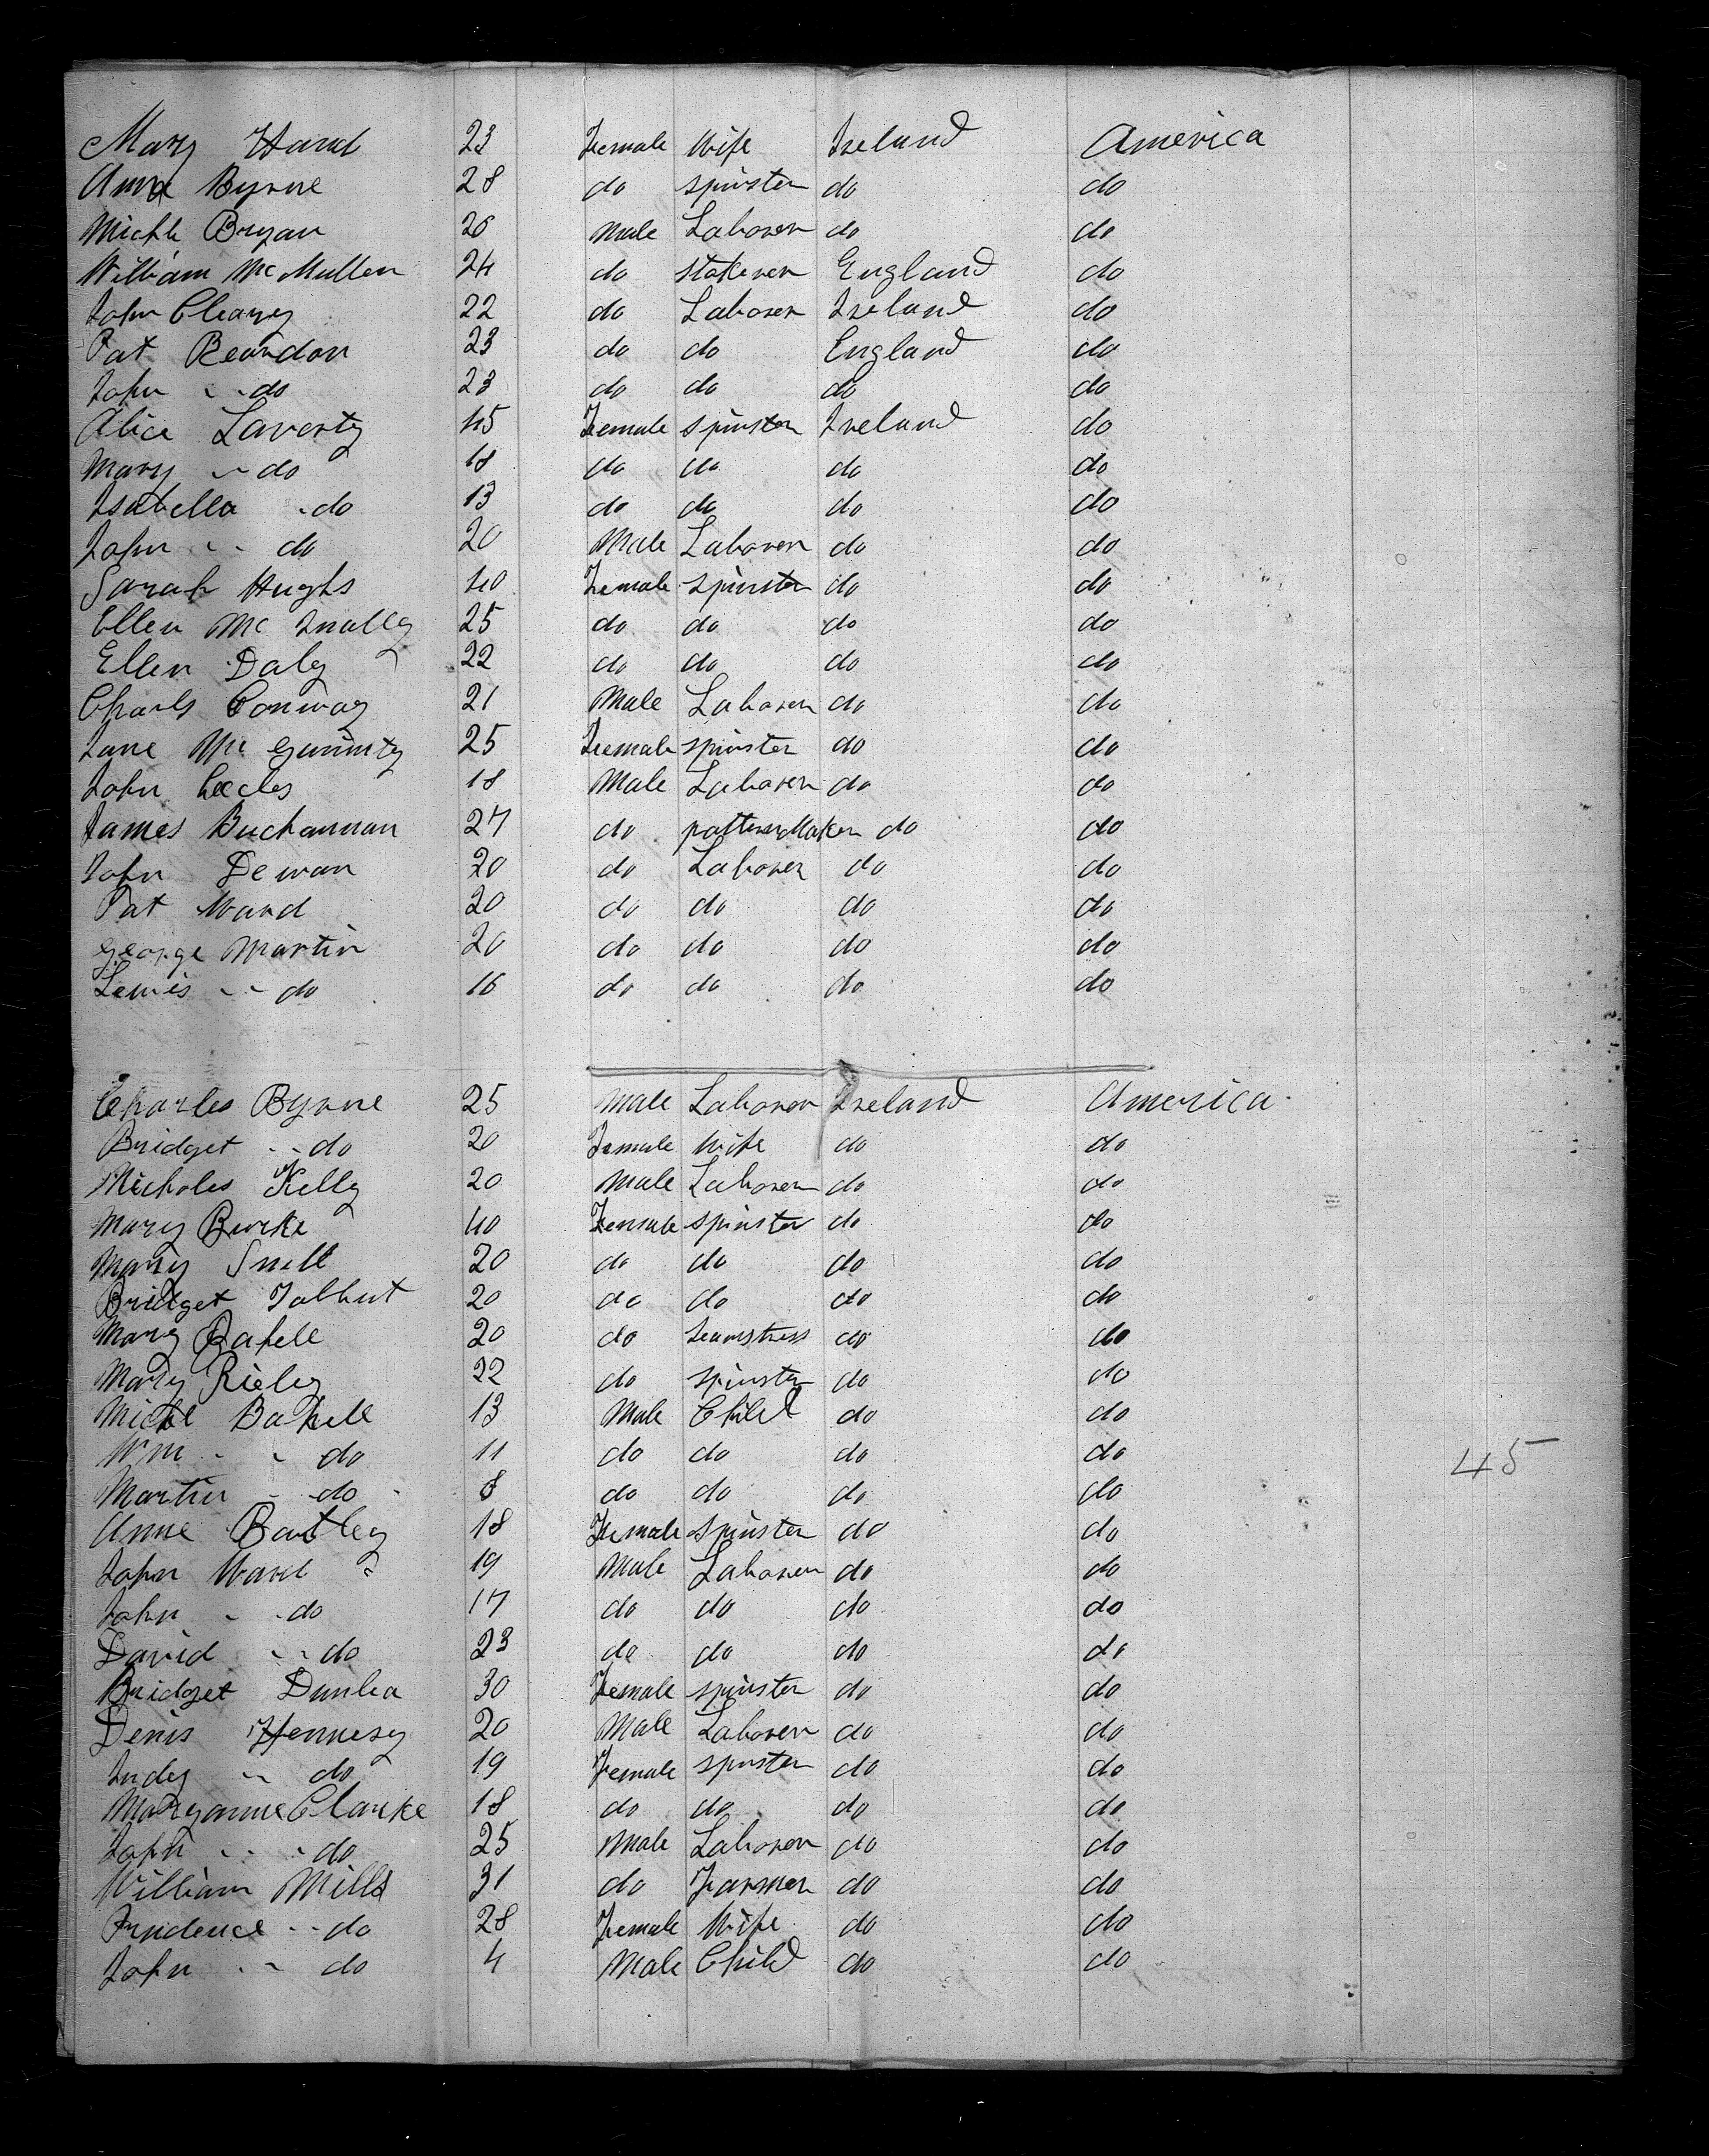 Mary Hand 23 Female Wife Ireland America
Anne Byrne 28 do spinster do do
Michl Bryan 26 Male Laborer do do
William McMullen 24 do England do
John Cleary 22 do Laborer Ireland do
Pat Reardon 23 do do England do
John " " do 23 do do do do
Alice Laverty 45 Female spinster Ireland do
Mary " do 18 do do do do
Isabella " do 13 do do do do
John " " do 20 Male Laborer do do
Sarah Hughs 40 Female spinster do do
Ellen Mc Inally 25 do do do do
Ellen Daly 22 do do do do
Charls Conway 21 Male Laborer do do
Jane Mc 25 Female spinster do do
John Eccles 18 Male Laborer do do
James Buchannan 27 do patternMaker do do
John Dewan 20 do Laborer do do
Pat Ward 20 do do do do
George Martin 20 do do do do
Lewis " " do 16 do do do do
Charles Byrne 25 Male Laborer Ireland America
Bridget " " do 20 Female Wife do do
Nicholas Kelly 20 Male Laborer do do
Mary Burke 40 Female spinster do do
Mary Snell 20 do do do do
Bridget Talbut 20 do do do do
Mary 20 do seamstress do do
Mary Rieley 22 do spinster do do
Michl 13 Male Child do do
Wm " " do 11 do do do do
45
Martin " do 8 do do do do
Anne Bartley 18 Female spinster do do
John Ward 19 Male Laborer do do
John " " do 17 do do do do
David " " do 23 do do do do
Bridget Dunlea 30 Female spinster do do
Denis Hennesy 20 Male Laborer do do
Judy " do 19 Female spinster do do
Maryanne Clarke 18 do do do do
John " " do 25 Male Laborer do do
William Mills 31 do Farmer do do
Prudence " " do 28 Female Wife do do
John " " do 4 Male Child do do